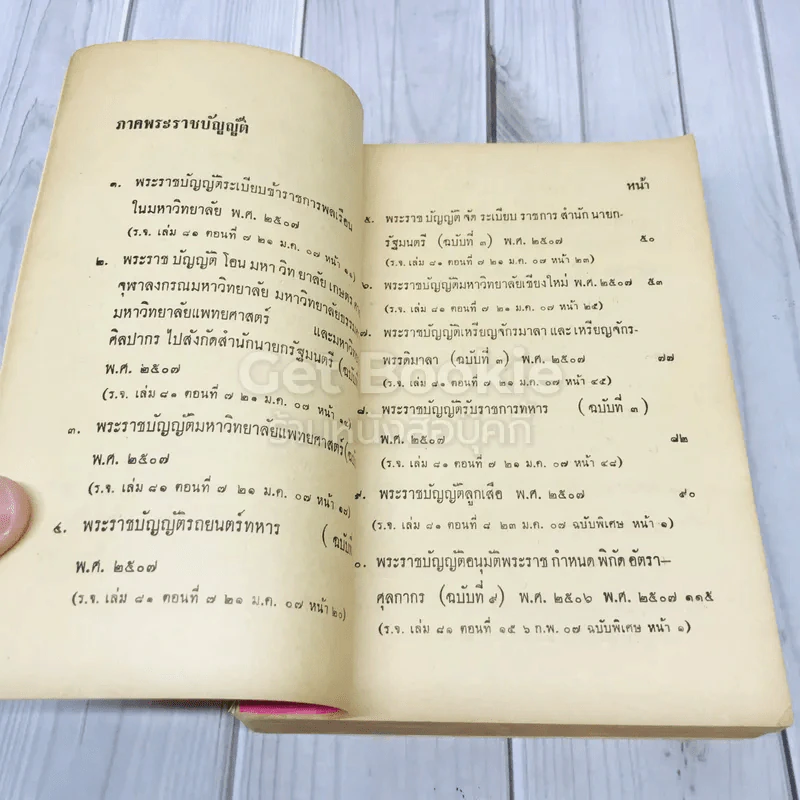 ภาคพระราชบัญญัติ
๑. พระราชบัญญัติระเบียบข้าราชการพลเรือน
ในมหาวิทยาลัย พ.ศ. ๒๕๐๗
(ร.จ. เล่ม ๘๑ ตอนที่ ๗ ๒๑ ม.ค. ๐๗ หน้า
๒. พระราช บัญญัติ โอน มหา วิท ยาลัย เกษตร
จุฬาลงกรณมหาวิทยาลัย มหาวิทยาลัยธรรม
มหาวิทยาลัยแพทยศาสตร์ และมหาวิทย
ศิลปากร ไปสังกัดสำนักนายกรัฐมนตรี
พ.ศ. ๒๕๐๗
(ร.จ. เล่ม ๘๑ ตอนที่ ๗ ๒๑ ม.ค. ๐๗ หน้า
๓. พระราชบัญญัติมหาวิทยาลัยแพทยศาสตร์
พ.ศ. ๒๕๐๗
(ร.จ. เล่ม ๘๑ ตอนที่ ๗ ๒๑ ม.ค. ๐๗ หน้า ๑๘)
๔. พระราชบัญญัติรถยนตร์ทหาร (ฉบับที่
พ.ศ. ๒๕๐๗
(ร.จ. เล่ม ๘๑ ตอนที่ ๗ ๒๑ ม.ค. ๐๗ หน้า ๒๐)
หน้า
๕. พระราช บัญญัติ จัด ระเบียบ ราชการ สำนัก นายก-
รัฐมนตรี (ฉบับที่ ๓) พ.ศ. ๒๕๐๗ ๕๐
(ร.จ. เล่ม ๘๑ ตอนที่ ๗ ๒๑ ม.ค. ๐๗ หน้า ๒๓)
๖. พระราชบัญญัติมหาวิทยาลัยเชียงใหม่ พ.ศ. ๒๕๐๗ ๕๓
(ร.จ. เล่ม ๘๑ ตอนที่ ๗ ๒๑ ม.ค. ๐๗ หน้า ๒๕)
๗. พระราชบัญญัติเหรียญจักรมาลา และ เหรียญจักร-
พรรดิมาลา (ฉบับที่ ๓) พ.ศ. ๒๕๐๗ ๗๗
(ร.จ. เล่ม ๘๑ ตอนที่ ๗ ๒๑ ม.ค. ๐๗ หน้า ๔๕)
๘. พระราชบัญญัติรับราชการทหาร (ฉบับที่ ๓)
พ.ศ. ๒๕๐๗ ๘๒
(ร.จ. เล่ม ๘๑ ตอนที่ ๗ ๒๑ ม.ค. ๐๗ หน้า ๔๘)
๙. พระราชบัญญัติลูกเสือ พ.ศ. ๒๕๐๗ ๙๐
(ร.จ. เล่ม ๘๑ ตอนที่ ๘ ๒๓ ม.ค. ๐๗ ฉบับพิเศษ หน้า ๑)
๐. พระราชบัญญัติอนุมัติพระราช กำหนด พิกัด อัตรา-
ศุลกากร (ฉบับที่ ๙) พ.ศ. ๒๕๐๖ พ.ศ. ๒๕๐๗ ๑๑๕
(ร.จ. เล่ม ๘๑ ตอนที่ ๑๕ ๖ ก.พ. ๐๗ ฉบับพิเศษ หน้า ๑)
Get Bookie
ร้านหนังสือบุคกี้